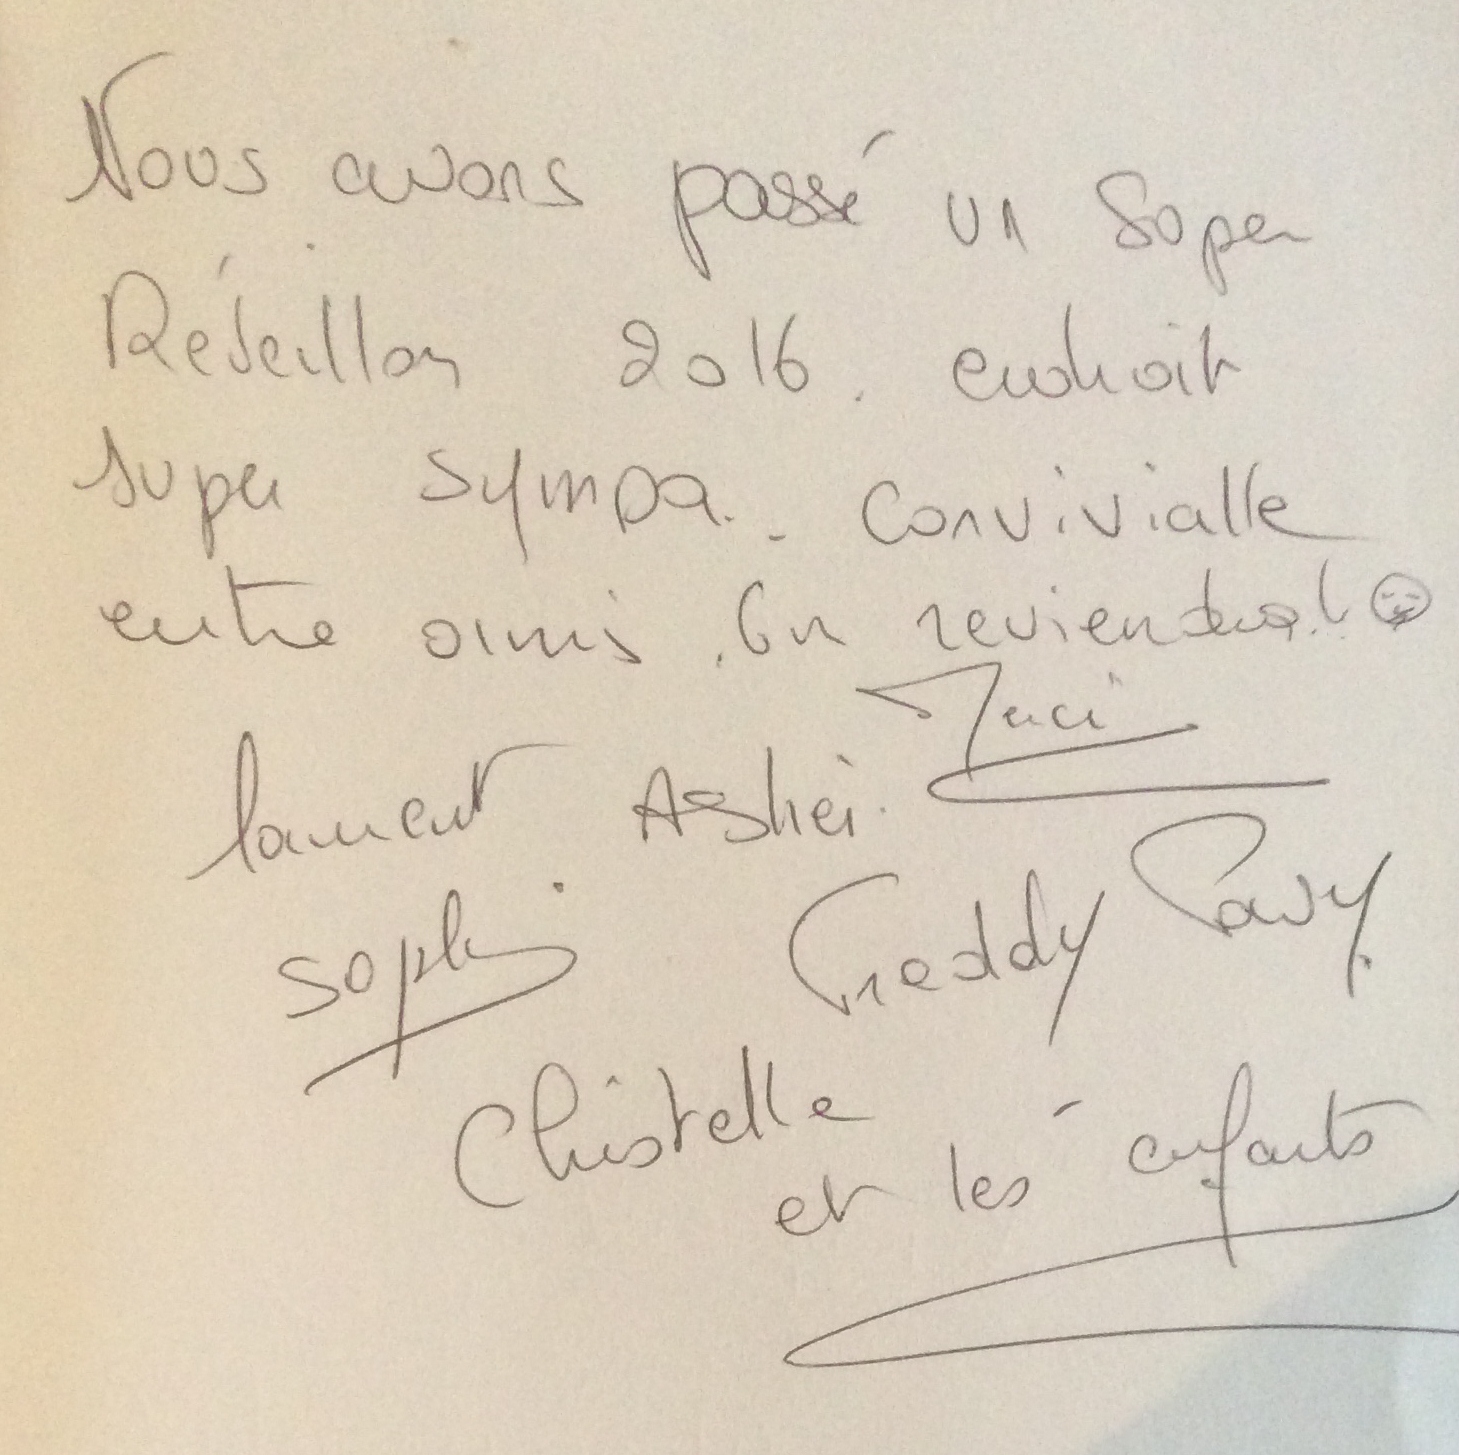 Nous avons passé un Super
Réveillon 2016. endroit
super sympa.. Convivialle
entre amis. On reviendra!
Merci
laurent
Sophie Freddy Pavy
Christelle
et les enfants